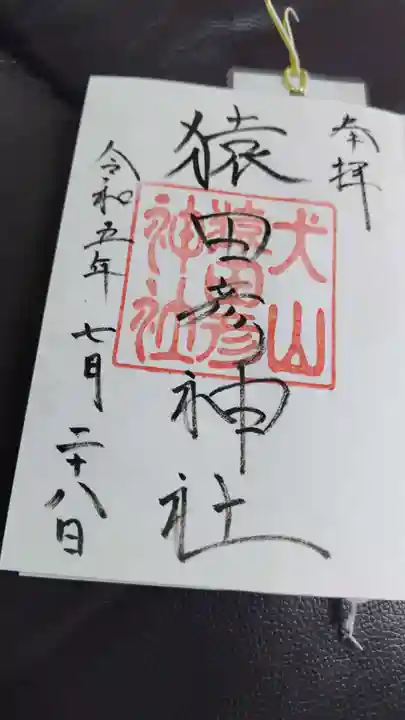 奉拝
猿田彦神社
犬山
猿田彦
神社
令和五年 七月 二十八日